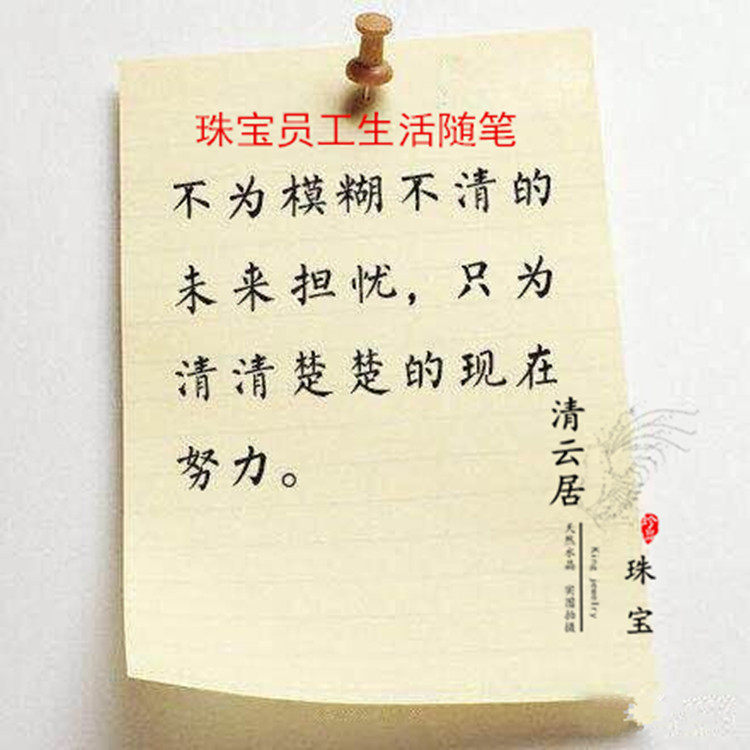 珠宝员工生活随笔
不为模糊不清的
未来担忧，只为
清清楚楚的现在
努力。
清云居
天然水晶 实图拍摄
King jewelry
珠宝